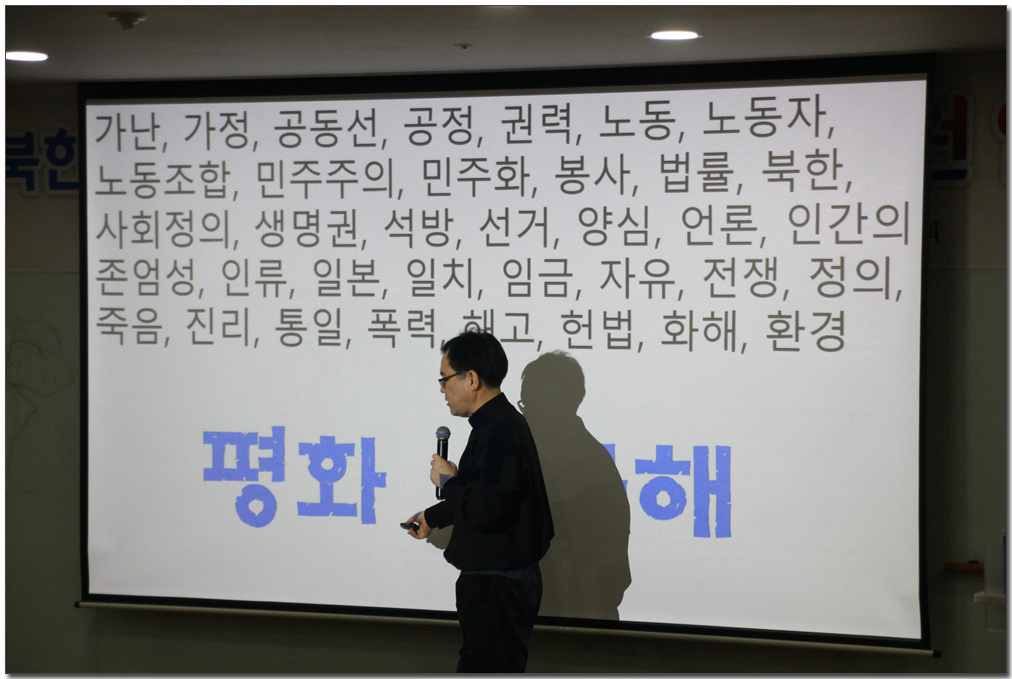 가난, 가정, 공동선, 공정, 권력, 노동, 노동자,
노동조합, 민주주의, 민주화, 봉사, 법률, 북한,
사회정의, 생명권, 석방, 선거, 양심, 언론, 인간의
존엄성, 인류, 일본, 일치, 임금, 자유, 전쟁, 정의,
죽음, 진리, 통일, 폭력, 해고, 헌법, 화해, 환경
평화
북한